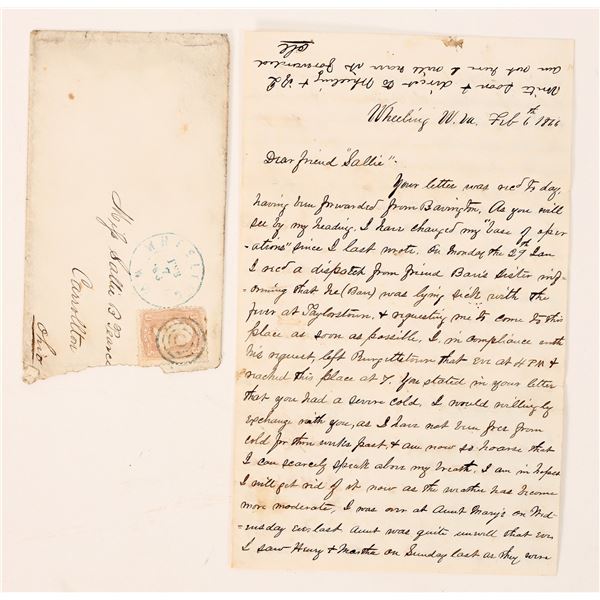 Miss Sallie B Pearce
Carrollton
Ohio
WHEELING
FEB
7
Write soon & direct to Wheeling & if I
am not here it will be forwarded
Wheeling W. Va. Feb 6th 1866
Dear friend "Sallie"
Your letter was recd to day,
having been forwarded from Bavington. As you will
see by my heading, I have changed my "base of oper
ations" since I last wrote. On Monday the 29th Jan
I recd a dispatch from friend Barr's Sister inf
orming that he (Barr) was lying sick with the
fever at Taylorstown, & requesting me to come to this
place as soon as possible, I, in compliance with
his request, left Burgettstown that eve at 4 P.M &
reached this place at 7. You stated in your letter
that you had a severe cold, I would willingly
exchange with you, as I have not been free from
cold for three weeks past, & am now so hoarse that
I can scarcely speak above my breath. I am in hopes
I will get rid of it now as the weather has become
more moderate, I was over at Aunt Mary's on Wed-
-nesday eve last Aunt was quite unwell that eve
I saw Henry & Martha on Sunday last as they were